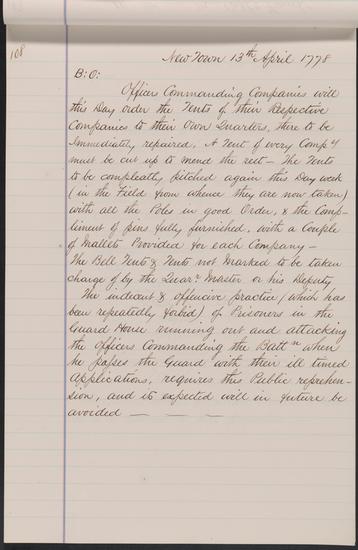 108
New Town 13th April 1778
B: O:
Officers Commanding Companies will
this Day order the Tents of their Respective
Companies to their Own Quarters, there to be
Immediately repaired. A Tent of every Compy
must be cut up to mend the rest — The Tents
to be compleatly pitched again this Day week
(in the Field from whence they are now taken)
with all the Poles in good Order, & the Comp-
liment of pins fully furnished, with a Couple
of Mallets Provided for each Company —
The Bell Tents & Tents not Marked to be taken
charge of by the Quarr Master or his Deputy
The indecent & offencive practice (which has
been repeatedly forbid) of Prisoners in the
Guard House running out and attacking
the Officers Commanding the Battn when
he passes the Guard with their ill timed
Applications, requires this Public reprehen-
sion, and its expected will in future be
avoided — — —